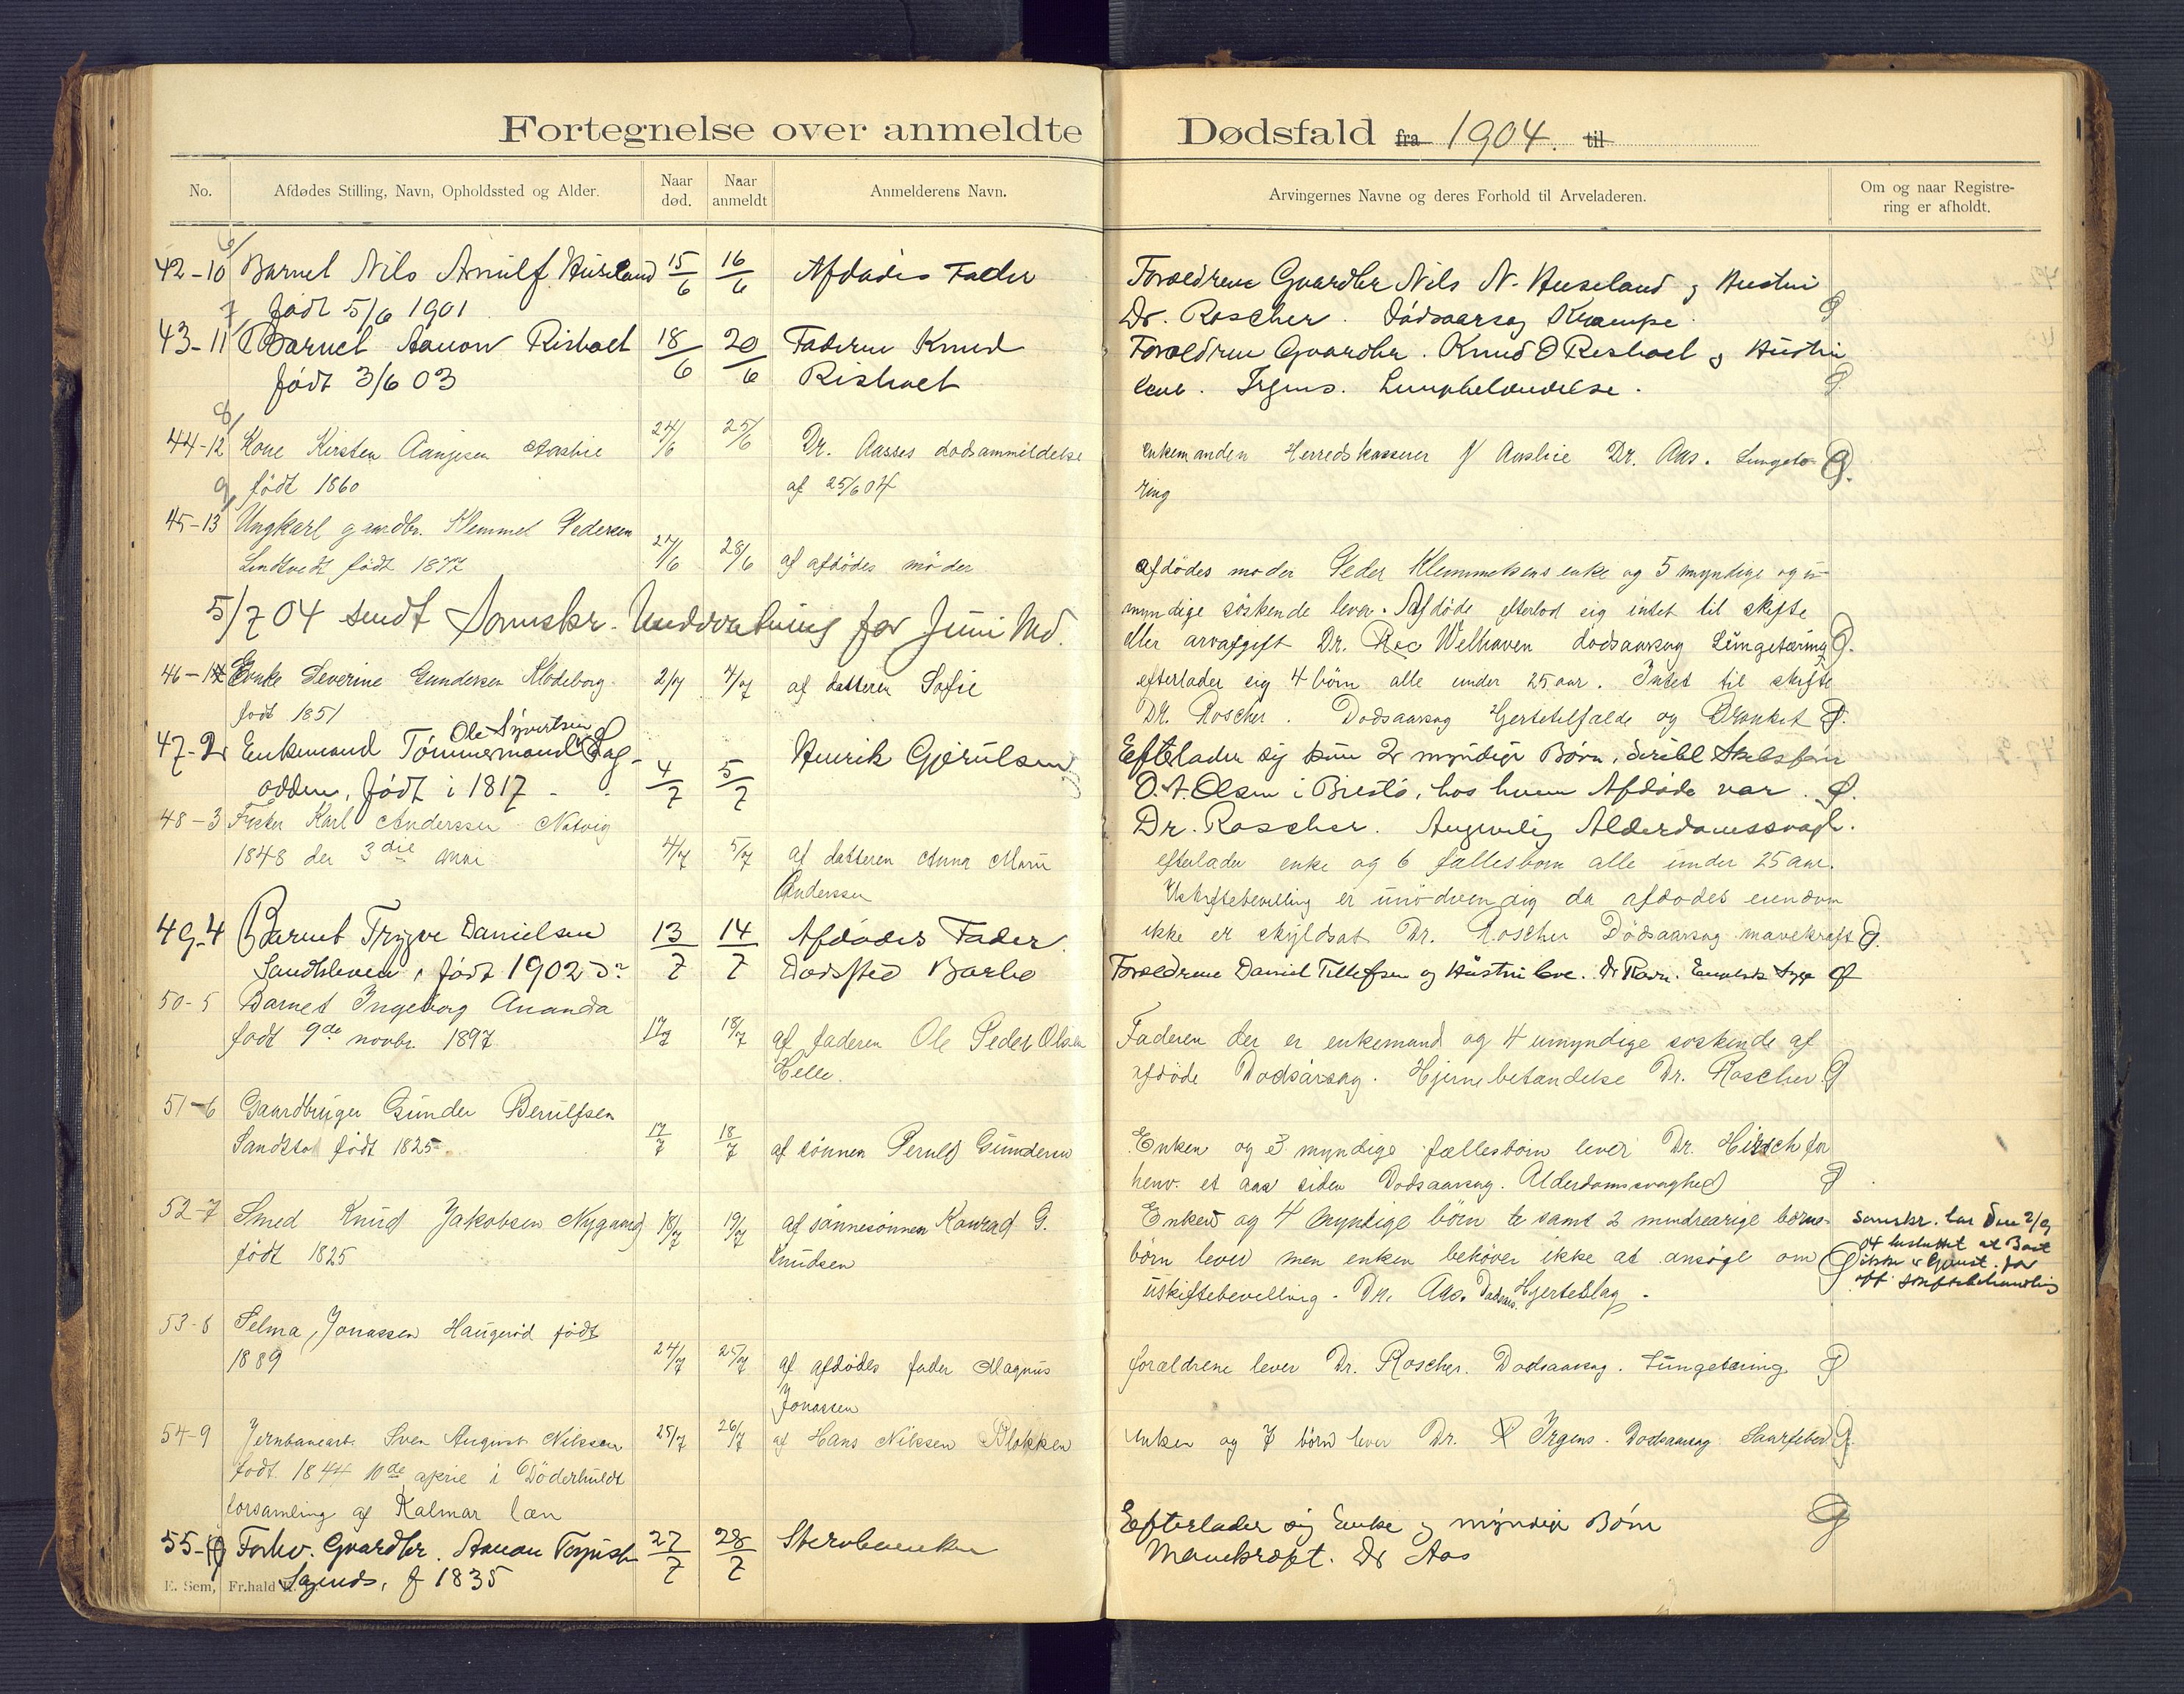 Fortegnelse over anmeldte Dødsfald fra 1904. til
No.
Afdødes Stilling, Navn, Opholdssted og Alder.
Naar død.
Naar anmeldt
Anmelderens Navn.
Arvingernes Navne og deres Forhold til Arveladeren.
Om og naar Registre-
ring er afholdt.
42-10 Barnet Nils Arnulf Huseland 15/6 16/6 Afdødes Fader
født 5/6 1901
Forældrene Gaardbr Nils N. Huseland og Hustru
Dr. Roscher. Dødsaarsag Krampe.
43-11 Barnet Aanon Risholt 18/6 20/6 Faderen Knud
født 3/6 03 Risholt
Forældrene Gaardbr. Knud O Risholt og Hustru
leve. Irgens. Lungebetændelse.
44-12 Kone Kirsten Aanjesen Aaslie 24/6 25/6 Dr. Aasses dødsanmeldelse
født 1860 af 25/6 04
enkemanden Herredskasserer Aaslie Dr. Aas. Lungetæ-
ring
45-13 Ungkarl gaardbr. Klemmet Pedersen
Lindtvedt født 1877 27/6 28/6 af afdødes moder
afdødes moder Peder Klemmetsens enke og 5 myndige og u-
myndige söskende lever. Afdøde efterlod sig intet til skifte
eller arvafgift Dr. Welhaven dødsaarsag Lungetæring
5/7 04 sendt Sorenskr. Underretning for Juni Md.
46-1 Enke Severine Gundersen Klodeborg 2/7 4/7 af datteren Sofie
født 1851
efterlader sig 4 børn alle under 25 aar. Intet til skifte
Dr. Roscher. Dødsaarsag Hjertetilfælde og
47-2 Enkemand Tømmermand Ole Syvertsen Sag-
odden, født i 1817 4/7 5/7 Henrik Gjerulsen
Efterlader sig kun 2 myndige Børn,
O. A. Olsen i , hos hvem Afdøde var.
Dr. Roscher. Angivelig Alderdomssvagh.
48-3 Fisker Karl Andersen Natvig
1848 den 3die mai 4/7 5/7 af datteren Anna Marie
Andersen
efterlader enke og 6 fællesbørn alle under 25 aar.
Uskiftebevilling er unødvendig da afdødes eiendom
ikke er skyldsat Dr. Roscher Dødsaarsag mavekræft
49-4 Barnet Trygve Danielsen 13/7 14/7 Afdødes Fader
Sandkleven, født 1902 Dødssted Barbo
Forældrene Daniel Tellefsen og Hustru leve. Dr. Engelsk Syge
50-5 Barnet Ingeborg Amanda
født 9de novbr 1897 17/7 18/7 af faderen Ole Peder Olsen
Helle.
Faderen der er enkemand og 4 umyndige soskende af
afdøde Dodsårsag. Hjernebetændelse Dr. Roscher
51-6 Gaardbruger Gunder Berulfsen
Sandstø født 1825 17/7 18/7 af sönnen Berulf Gundersen
Enken og 3 myndige fællesbørn lever Dr. Hirsch for
henv. et aar siden Dodsaarsag. Alderdomssvaghed
52-7 Smed Knud Jakobsen Nygaard 18/7 19/7 af sønnesønnen Konrad G.
født 1825 Knudsen
Enken og 4 myndige børn samt 2 mindreaarige børne-
børn lever men enken behøver ikke at ansøge om
uskiftebevilling. Dr. Aas. Dødsaars. Hjerteslag.
Sorenskr. har den 2/9
04 besluttet at Boet
ikke er for
off. skiftebehandling
53-8 Selma Jonassen Haugerød født
1889 24/7 25/7 af afdødes fader Magnus
Jonassen
forældrene lever Dr. Roscher. Dodsaarsag. Lungetæring
54-9 Jernbanearb. Sven August Nilssen 25/7 26/7 af Hans Nilsen Blokken
født 1844 10de april i Döderhuldt
forsamling af Kalmar læn
Enken og 7 börn lever Dr. Irgens. Dodsaarsag Saarfeber
55-10 Forhv. Gaardbr. Aanon 27/7 28/7 Stervboenken
f 1835
Efterlader sig Enke og myndige Børn
Mavekræft. Dr Aas
E. Sem, Fr.hald